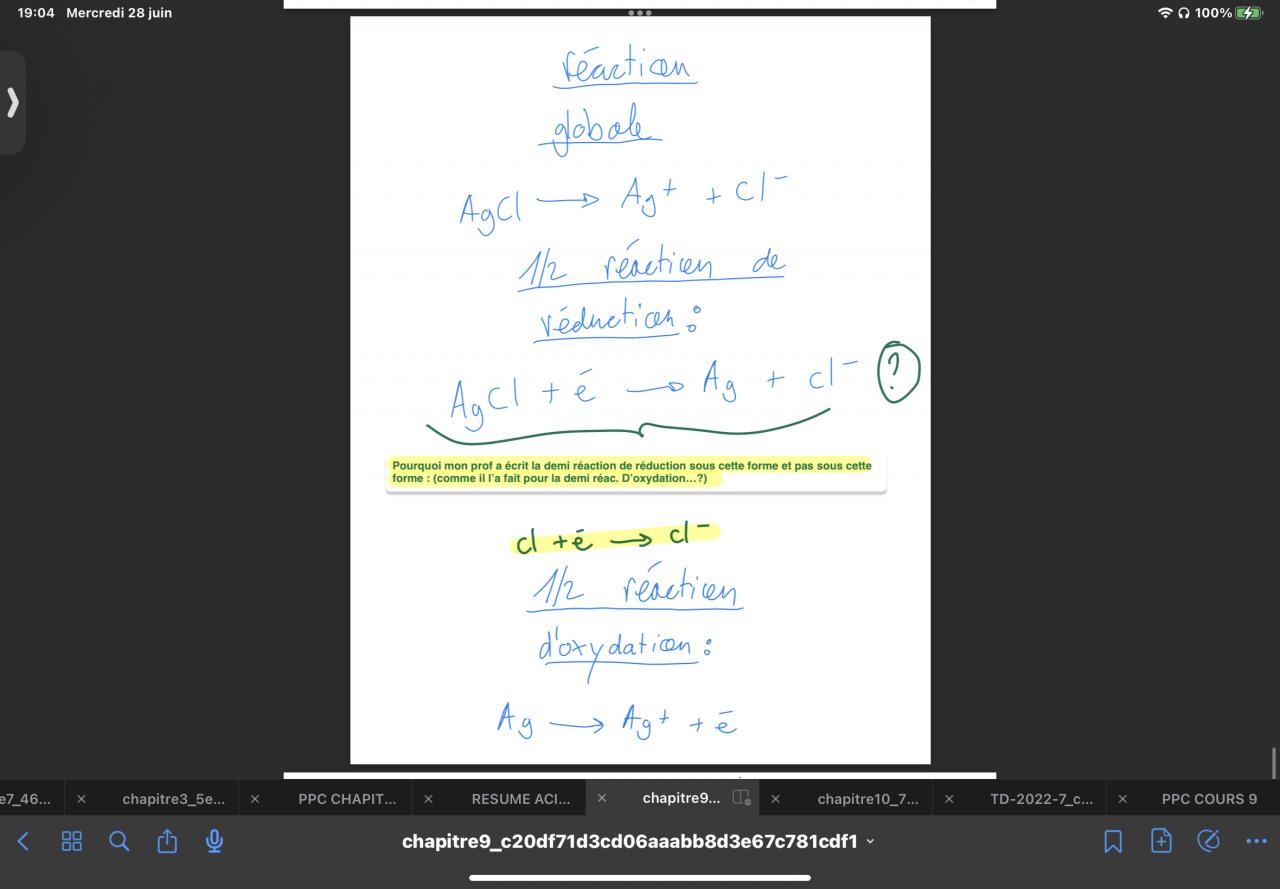 19:04 Mercredi 28 juin
100%
réaction
globale
AgCl → Ag+ + Cl-
1/2 réaction de
réduction :
AgCl + ē → Ag + cl- ?
Pourquoi mon prof a écrit la demi réaction de réduction sous cette forme et pas sous cette
forme : (comme il l'a fait pour la demi réac. D'oxydation...?)
cl + ē → cl-
1/2 réaction
d'oxydation :
Ag → Ag+ + ē
e7_46... × chapitre3_5e... × PPC CHAPIT... × RESUME ACI... × chapitre9... × chapitre10_7... × TD-2022-7_c... × PPC COURS 9
chapitre9_c20df71d3cd06aaabb8d3e67c781cdf1